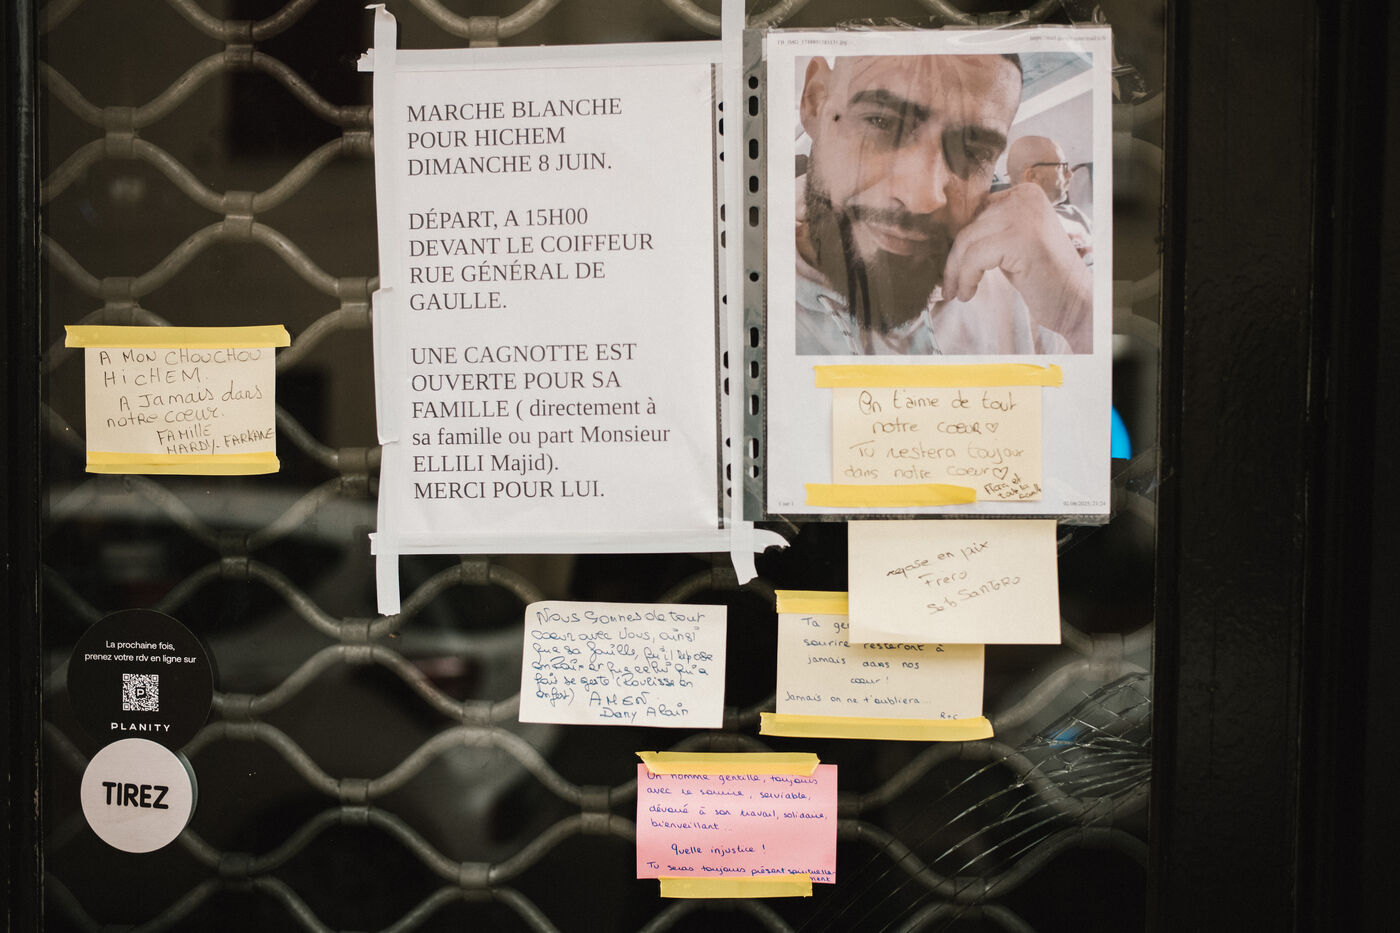 MARCHE BLANCHE
POUR HICHEM
DIMANCHE 8 JUIN.
DÉPART, A 15H00
DEVANT LE COIFFEUR
RUE GÉNÉRAL DE
GAULLE.
UNE CAGNOTTE EST
OUVERTE POUR SA
FAMILLE ( directement à
sa famille ou part Monsieur
ELLILI Majid).
MERCI POUR LUI.
On t'aime de tout
notre coeur
Tu restera toujour
dans notre coeur
Flora et
tout la
famille
1 sur 1
02/06/2025, 21:24
A MON CHOUCHOU
HiCHEM.
A Jamais dans
notre coeur.
FAMILLE
HARDY-FARKANE
repose en paix
Frero
Seb SANTORO
Nous sommes de tout
coeur avec vous, ainsi
que sa famille, qu'il repose
en Paix et que celui qui a
fait se geste (Pourisse en
enfer) AMEN.
Dany Alain
Ta
sourire resteront à
jamais dans nos
coeur !
Jamais on ne t'oubliera...
R+C
Un homme gentille, toujours
avec le sourire, serviable,
dévoué à son travail, solidaire,
bienveillant...
Quelle injustice !
Tu seras toujours présent spirituelle-
ment
La prochaine fois,
prenez votre rdv en ligne sur
P
PLANITY
TIREZ